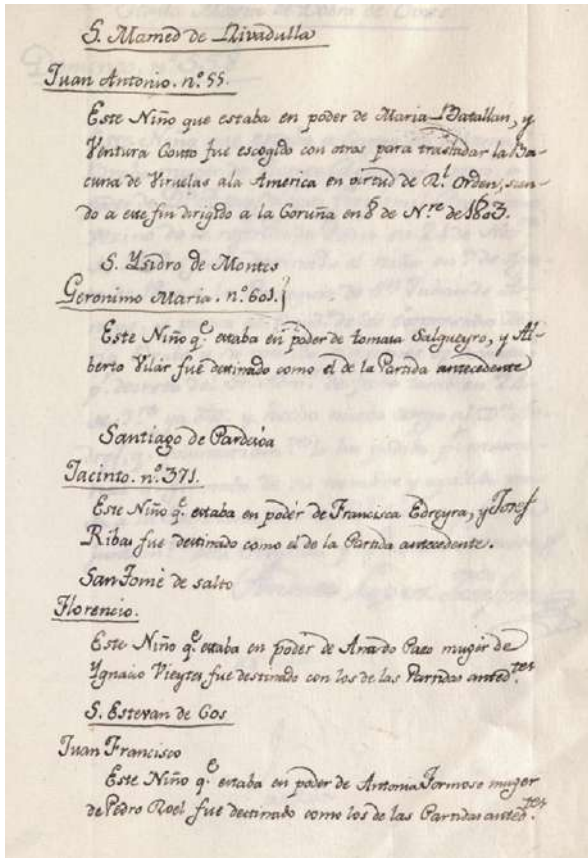 S. Mamed de Rivadulla
Juan Antonio. n.º 55.
Este Niño que estaba en poder de Maria Batallan, y
Ventura Couto fue escogido con otros para trasladar la Ba-
cuna de Viruelas ala America en virtud de R.l orden, sien-
do a este fin dirigido a la Coruña en 8 de N.re de 1803.
S. Ysidro de Montes
Geronimo Maria. n.º 601.
Este Niño q.e estaba en poder de tomasa Salgueyro, y Al-
berto Vilar fue destinado como el de la Partida antecedente
Santiago de
Jacinto. n.º 371.
Este Niño q.e estaba en poder de Francisca Edreyra, y Josef
Ribas fue destinado como el de la Partida antecedente.
San Tomé de salto
Florencio.
Este Niño q.e estaba en poder de Ana do Pazo muger de
Ygnacio Vieytes, fue destinado con los de las Partidas anted.tes
S. Estevan de Cos
Juan Francisco
Este Niño q.e estaba en poder de Antonia Formoso muger
de Pedro Roel fue destinado como los de las Partidas anted.tes